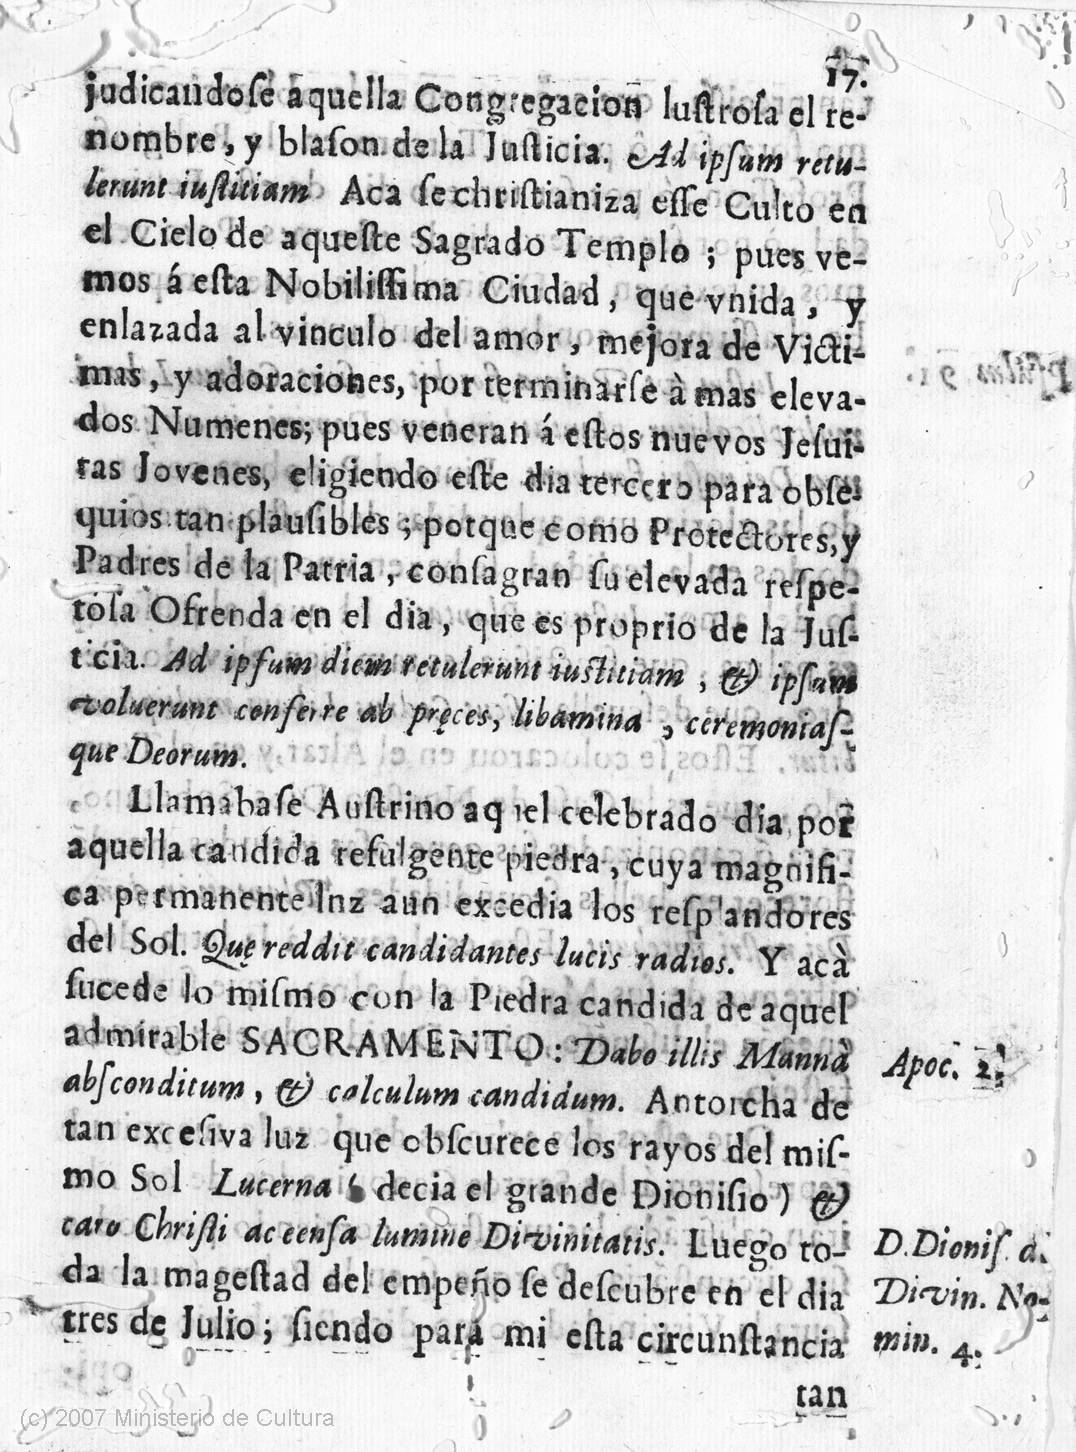 17.
judicandose aquella Congregacion lustrosa el re-
nombre, y blason de la Justicia. Ad ipsum retu-
lerunt iustitiam Aca se christianiza esse Culto en
el Cielo de aqueste Sagrado Templo ; pues ve-
mos á esta Nobilissima Ciudad, que vnida, y
enlazada al vinculo del amor, mejora de Victi-
mas, y adoraciones, por terminarse à mas eleva-
dos Numenes; pues veneran á estos nuevos Jesui-
tas Jovenes, eligiendo este dia tercero para obse-
quios tan plausibles ; porque como Protectores, y
Padres de la Patria, consagran su elevada respe-
tosa Ofrenda en el dia, que es proprio de la Jus-
ticia. Ad ipsum diem retulerunt iustitiam, & ipsam
voluerunt conferre ab pręces, libamina, ceremonias-
que Deorum.
Llamabase Austrino aquel celebrado dia por
aquella candida refulgente piedra, cuya magnifi-
ca permanente lnz aun excedia los resplandores
del Sol. Quę reddit candidantes lucis radios. Y acà
sucede lo mismo con la Piedra candida de aquel
admirable SACRAMENTO: Dabo illis Mannà
absconditum, & calculum candidum. Antorcha de
tan excesiva luz que obscurece los rayos del mis-
mo Sol Lucerna ( decia el grande Dionisio ) &
caro Christi accensa lumine Divinitatis. Luego to-
da la magestad del empeño se descubre en el dia
tres de Julio; siendo para mi esta circunstancia
tan
Apoc. 2.
D. Dionis. d.
Divin. No-
min. 4.
(c) 2007 Ministerio de Cultura